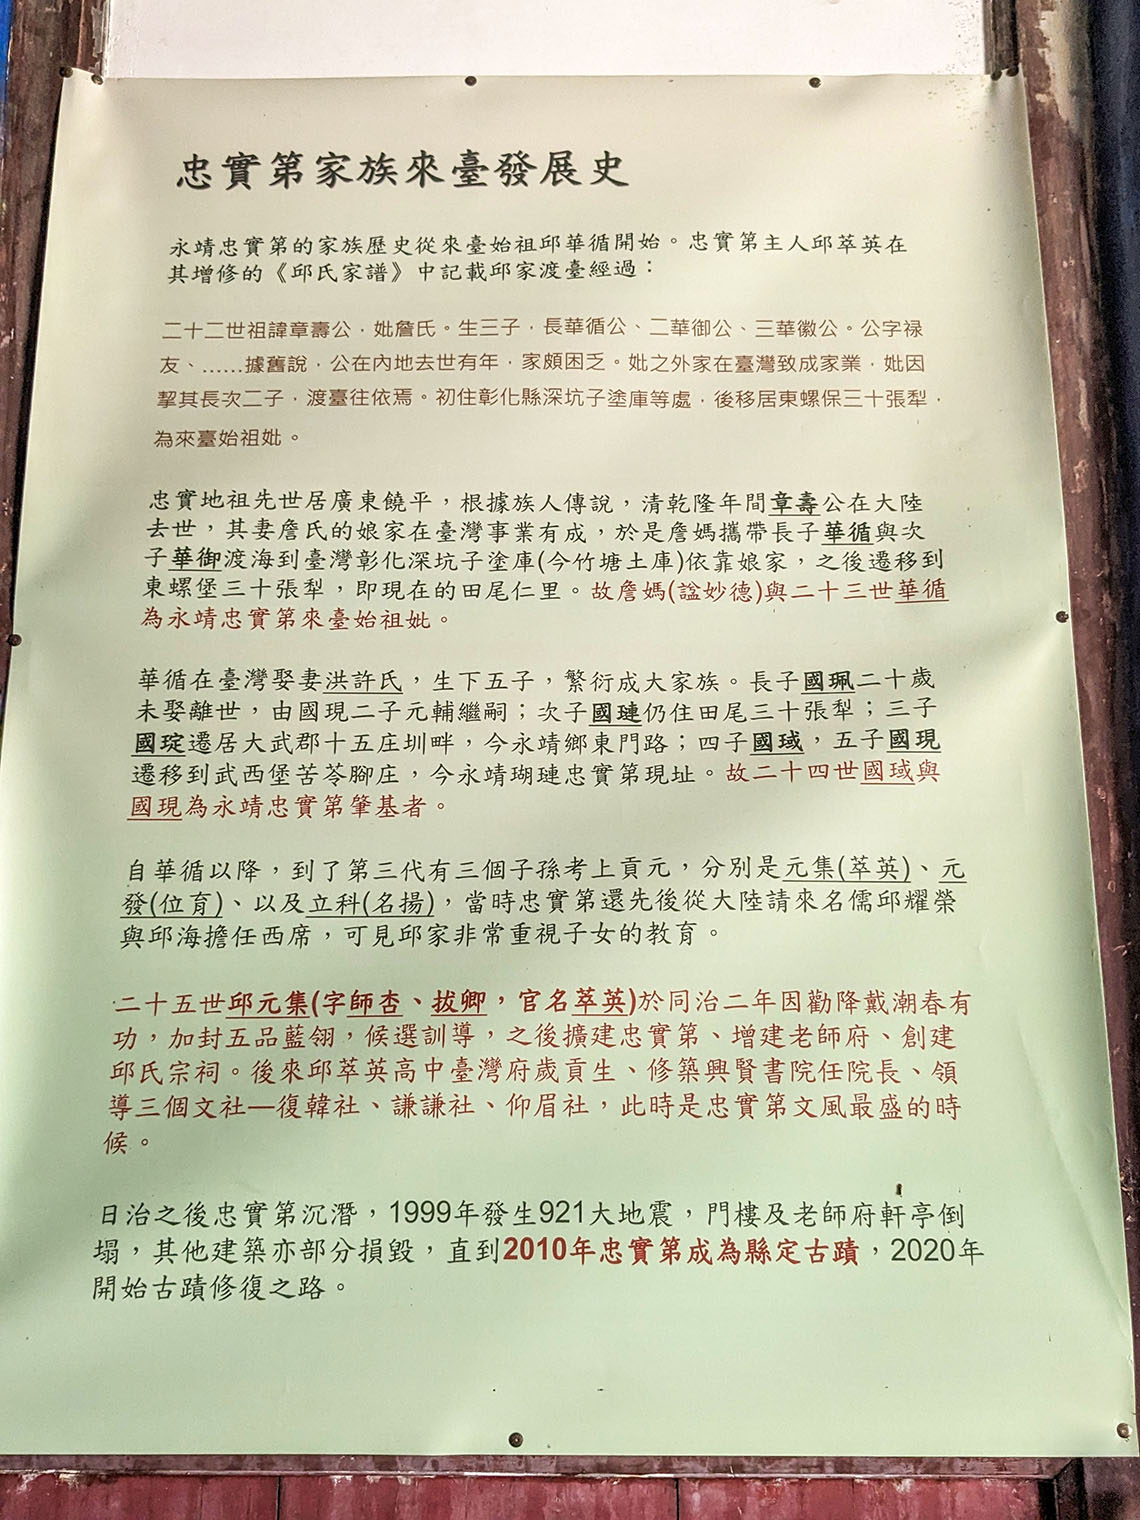 忠實第家族來臺發展史
永靖忠實第的家族歷史從來臺始祖邱華循開始。忠實第主人邱萃英在
其增修的《邱氏家譜》中記載邱家渡臺經過：
二十二世祖諱章壽公，妣詹氏。生三子，長華循公、二華御公、三華徽公。公字祿
友、……據舊說，公在內地去世有年，家頗困乏。妣之外家在臺灣致成家業，妣因
挈其長次二子，渡臺往依焉。初住彰化縣深坑子塗庫等處，後移居東螺保三十張犁，
為來臺始祖妣。
忠實地祖先世居廣東饒平，根據族人傳說，清乾隆年間章壽公在大陸
去世，其妻詹氏的娘家在臺灣事業有成，於是詹媽攜帶長子華循與次
子華御渡海到臺灣彰化深坑子塗庫(今竹塘土庫)依靠娘家，之後遷移到
東螺堡三十張犁，即現在的田尾仁里。故詹媽(諡妙德)與二十三世華循
為永靖忠實第來臺始祖妣。
華循在臺灣娶妻洪許氏，生下五子，繁衍成大家族。長子國珮二十歲
未娶離世，由國現二子元輔繼嗣；次子國璉仍住田尾三十張犁；三子
國琔遷居大武郡十五庄圳畔，今永靖鄉東門路；四子國琙，五子國現
遷移到武西堡苦苓腳庄，今永靖瑚璉忠實第現址。故二十四世國琙與
國現為永靖忠實第肇基者。
自華循以降，到了第三代有三個子孫考上貢元，分別是元集(萃英)、元
發(位育)、以及立科(名揚)，當時忠實第還先後從大陸請來名儒邱耀榮
與邱海擔任西席，可見邱家非常重視子女的教育。
二十五世邱元集(字師杏、拔卿，官名萃英)於同治二年因勸降戴潮春有
功，加封五品藍翎，候選訓導，之後擴建忠實第、增建老師府、創建
邱氏宗祠。後來邱萃英高中臺灣府歲貢生、修築興賢書院任院長、領
導三個文社—復韓社、謙謙社、仰眉社，此時是忠實第文風最盛的時
候。
日治之後忠實第沉潛，1999年發生921大地震，門樓及老師府軒亭倒
塌，其他建築亦部分損毀，直到2010年忠實第成為縣定古蹟，2020年
開始古蹟修復之路。